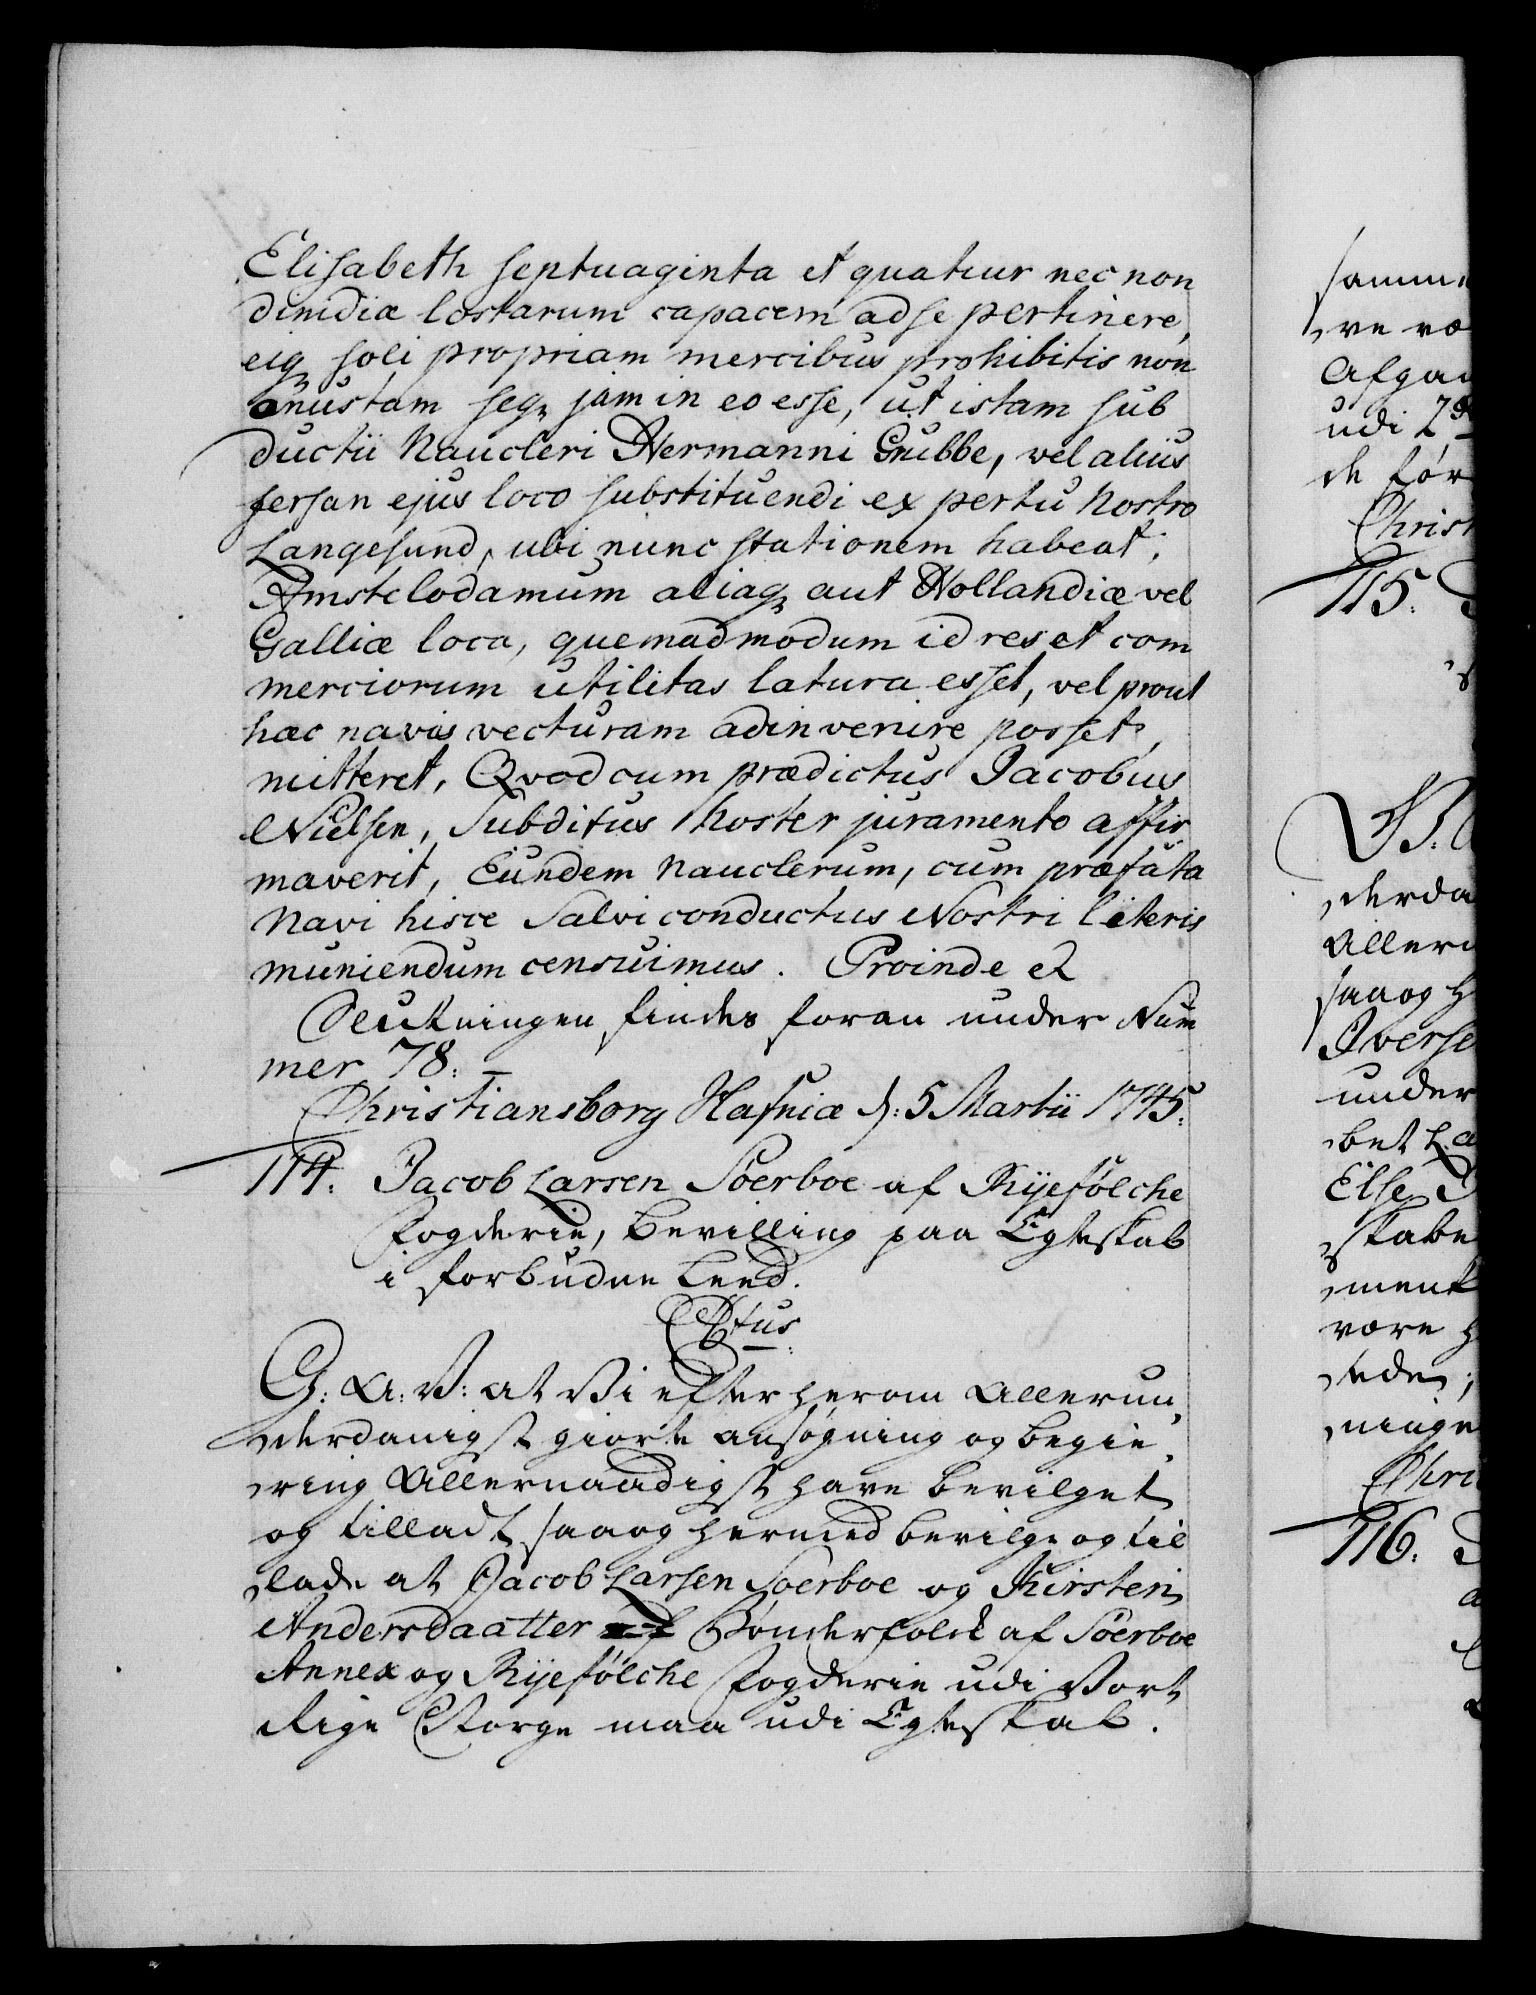 Elisabeth septuaginta et quatuor nec non
dimidiæ lostarum capacem ad se pertinere,
eiq; soli propriam mercibus prohibitis non
onustam seq; jam in eo esse, ut istam sub
ductu Naucleri Hermanni Grubbe, vel alius
fersan ejus loco substituendi ex pertu Nostro
Langesund, ubi nunc stationem habeat,
Amstelodamum aliaq; aut Hollandiæ vel
Galliæ loca, quemadmodum id res et com
merciorum utilitas latura esset, vel prout
hæc navis vecturam adinvenire posset,
mitteret, Qvod cum prædictus Jacobus
Nielsen, Subditus Noster juramento affir
maverit, Eundem Nauclerum, cum præfata
Navi hisce Salvi conductus Nostri literis
muniendum censuimus. Proinde &
Slutningen findes foran under Num
mer 78:
Christiansborg Hafniæ d: 5 Martii 1745:
114. Jacob Larsen Soerboe af Rÿefølche
Fogderie, bevilling paa Egteskab
i forbuden Leed.
C 6tus.
G: A: V: at Vi efter herom allerun,
derdanigst giorte ansøgning og begie,
ring allernaadigst have bevilget
og tilladt, saa og hermed bevilge og til
lade at Jacob Larsen Soerboe og Kirsten
Andersdaatter Bønderfolck af Soerboe
Annex og Rÿefølche Fogderie udi Vort
Rige Norge maa udi Egteskab.
samm
re væ
Afgan
udi 2de
de før
Christ
115.
V: A
derda
aller
saa og h
Iverse
under
bet La
Else
skabe
ment
være h
ede,
ninge
Chri
116.